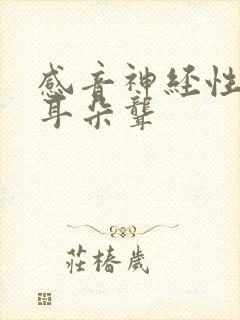 感音神経性
耳朵聋
莊椿歲